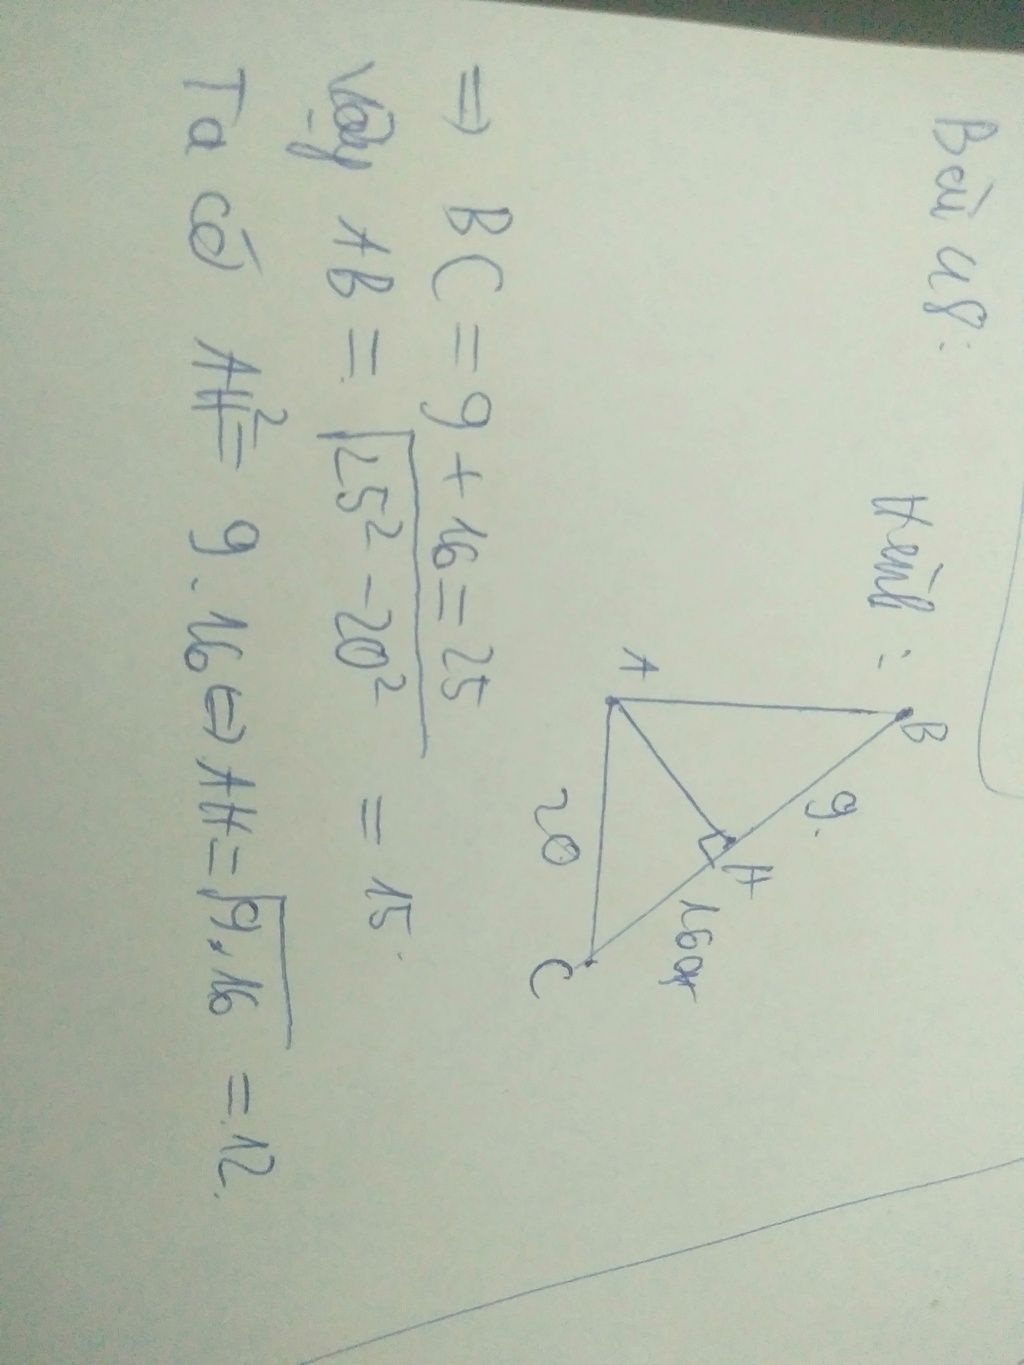 Bài 48:
Hình :
B
9.
A
H
16
20
C
⇒ BC = 9 + 16 = 25
Vậy AB = √25² - 20² = 15.
Ta có AH² = 9 . 16 ⇔ AH = √9.16 = 12.